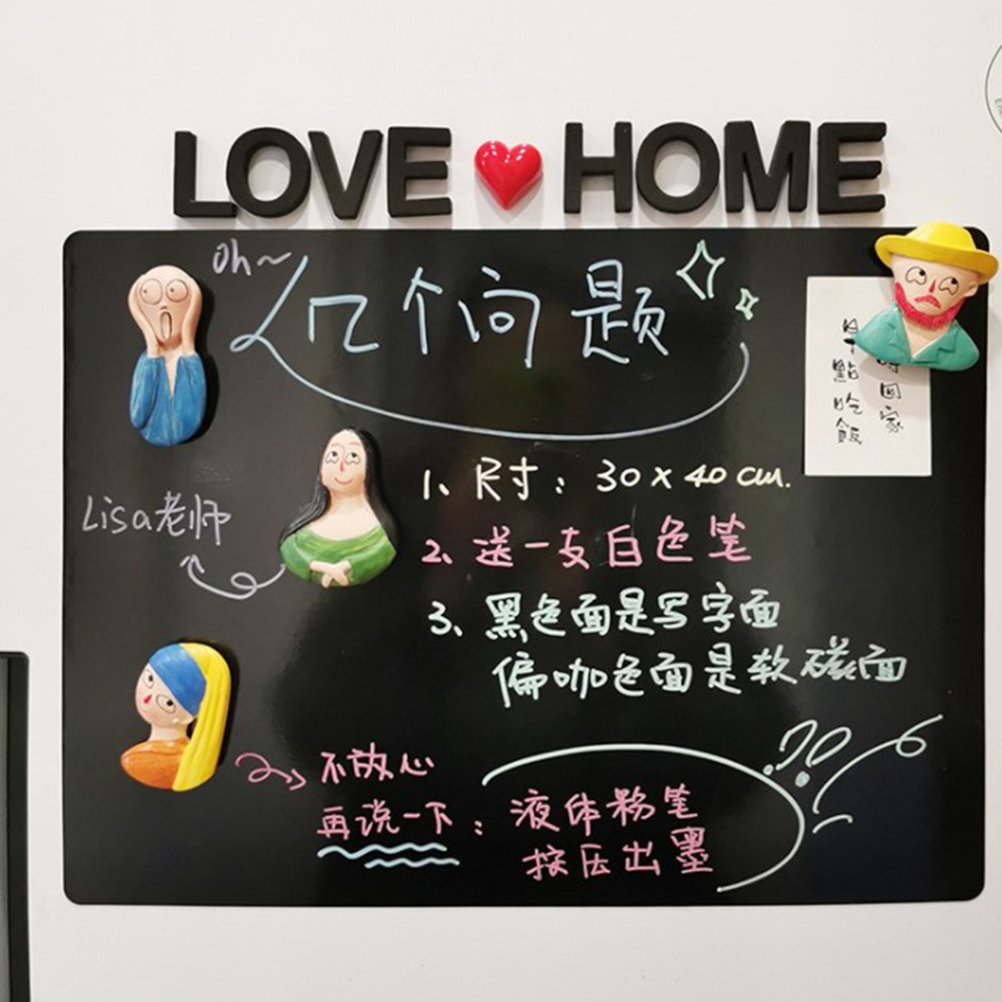 LOVE HOME
Oh~
几个问题
1、尺寸：30 x 40 cm.
Lisa老师
2、送一支白色笔
3、黑色面是写字面
偏咖色面是软磁面
不放心
再说一下：
液体粉笔
按压出墨
回家
早點吃飯